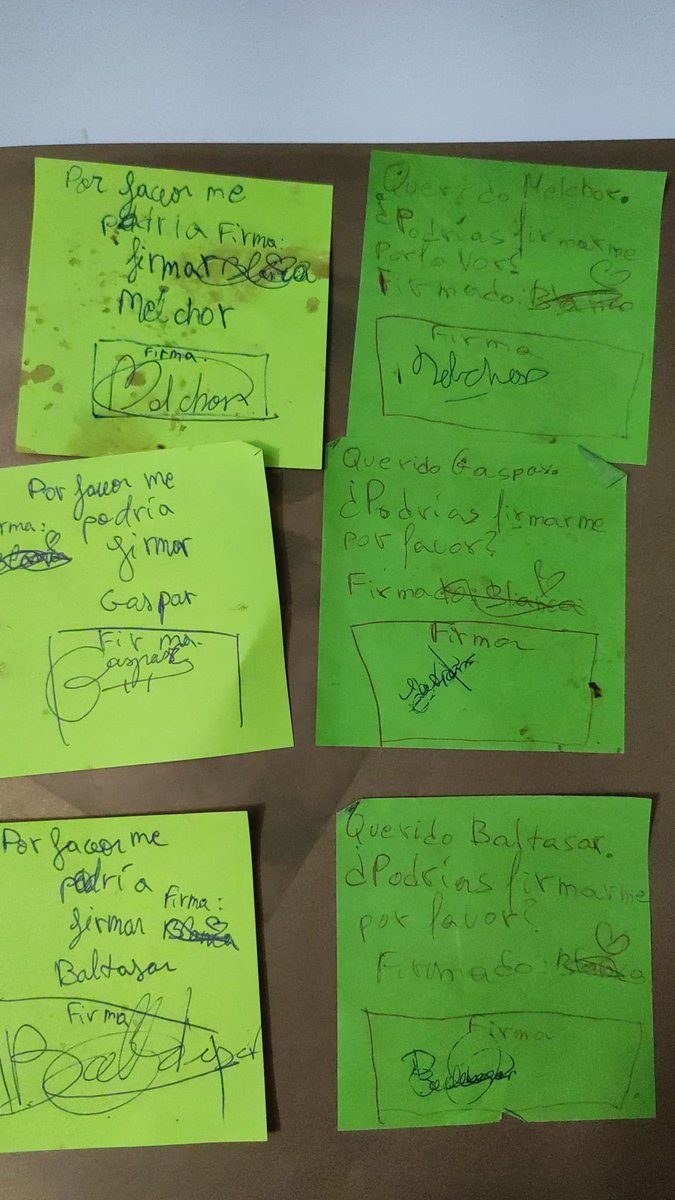 Por favor me
podría
Firma:
firmar Blanca
Melchor
Firma.
Melchor
Querido Melchor.
¿Podrías firmarme
por favor?
Firmado: Blanca
Firma
Melchor
Por favor me
podría
irma:
firmar
Blanca
Gaspar
Firma.
Gaspar
Querido Gaspar.
¿Podrías firmarme
por favor?
Firmado: Blanca
Firma
Gaspar
Por favor me
podría
Firma:
firmar Blanca
Baltasar
Firma
Baltasar
Querido Baltasar.
¿Podrías firmarme
por favor?
Firmado: Blanca
Firma
Baltasar